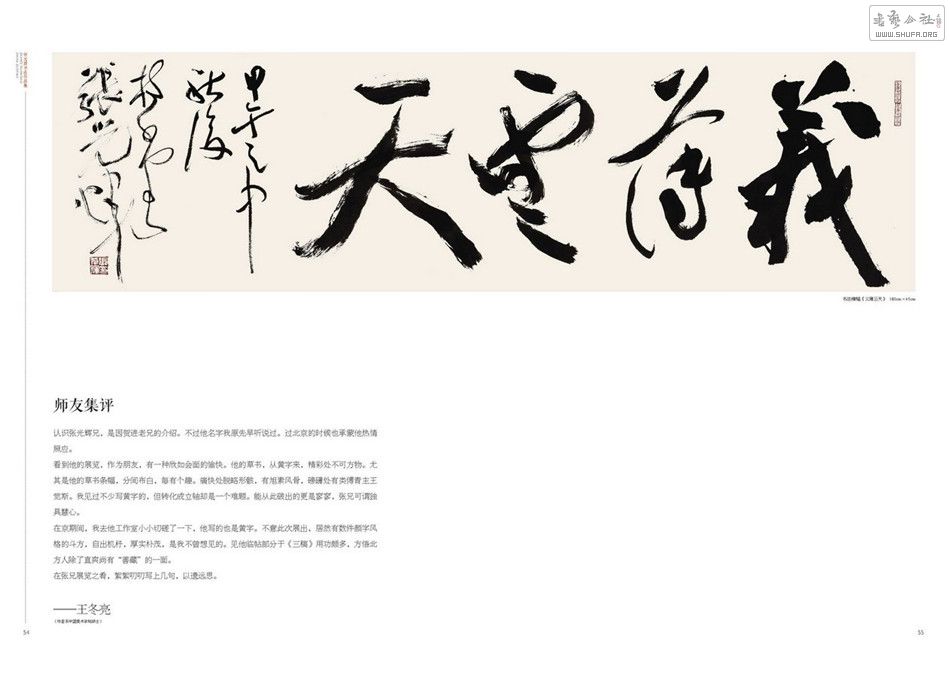 書藝公社
WWW.SHUFA.ORG
義薄雲天
甲午之中
秋後
張光輝
书法横幅《义薄云天》 180cm×45cm
师友集评
认识张光辉兄，是因贺进老兄的介绍。不过他名字我原先早听说过。过北京的时候也承蒙他热情
照应。
看到他的展览，作为朋友，有一种欣如会面的愉快。他的草书，从黄字来，精彩处不可方物。尤
其是他的草书条幅，分间布白，每有个趣。痛快处脱略形骸，有旭素风骨，磅礴处有类傅青主王
觉斯。我见过不少写黄字的，但转化成立轴却是一个难题。能从此破出的更是寥寥，张兄可谓独
具慧心。
在京期间，我去他工作室小小切磋了一下，他写的也是黄字。不意此次展出，居然有数件颜字风
格的斗方，自出机杼，厚实朴茂，是我不曾想见的。见他临帖部分于《三稿》用功颇多，方悟北
方人除了直爽尚有“善藏”的一面。
在张兄展览之肴，絮絮叨叨写上几句，以遗远思。
——王冬亮
54
55